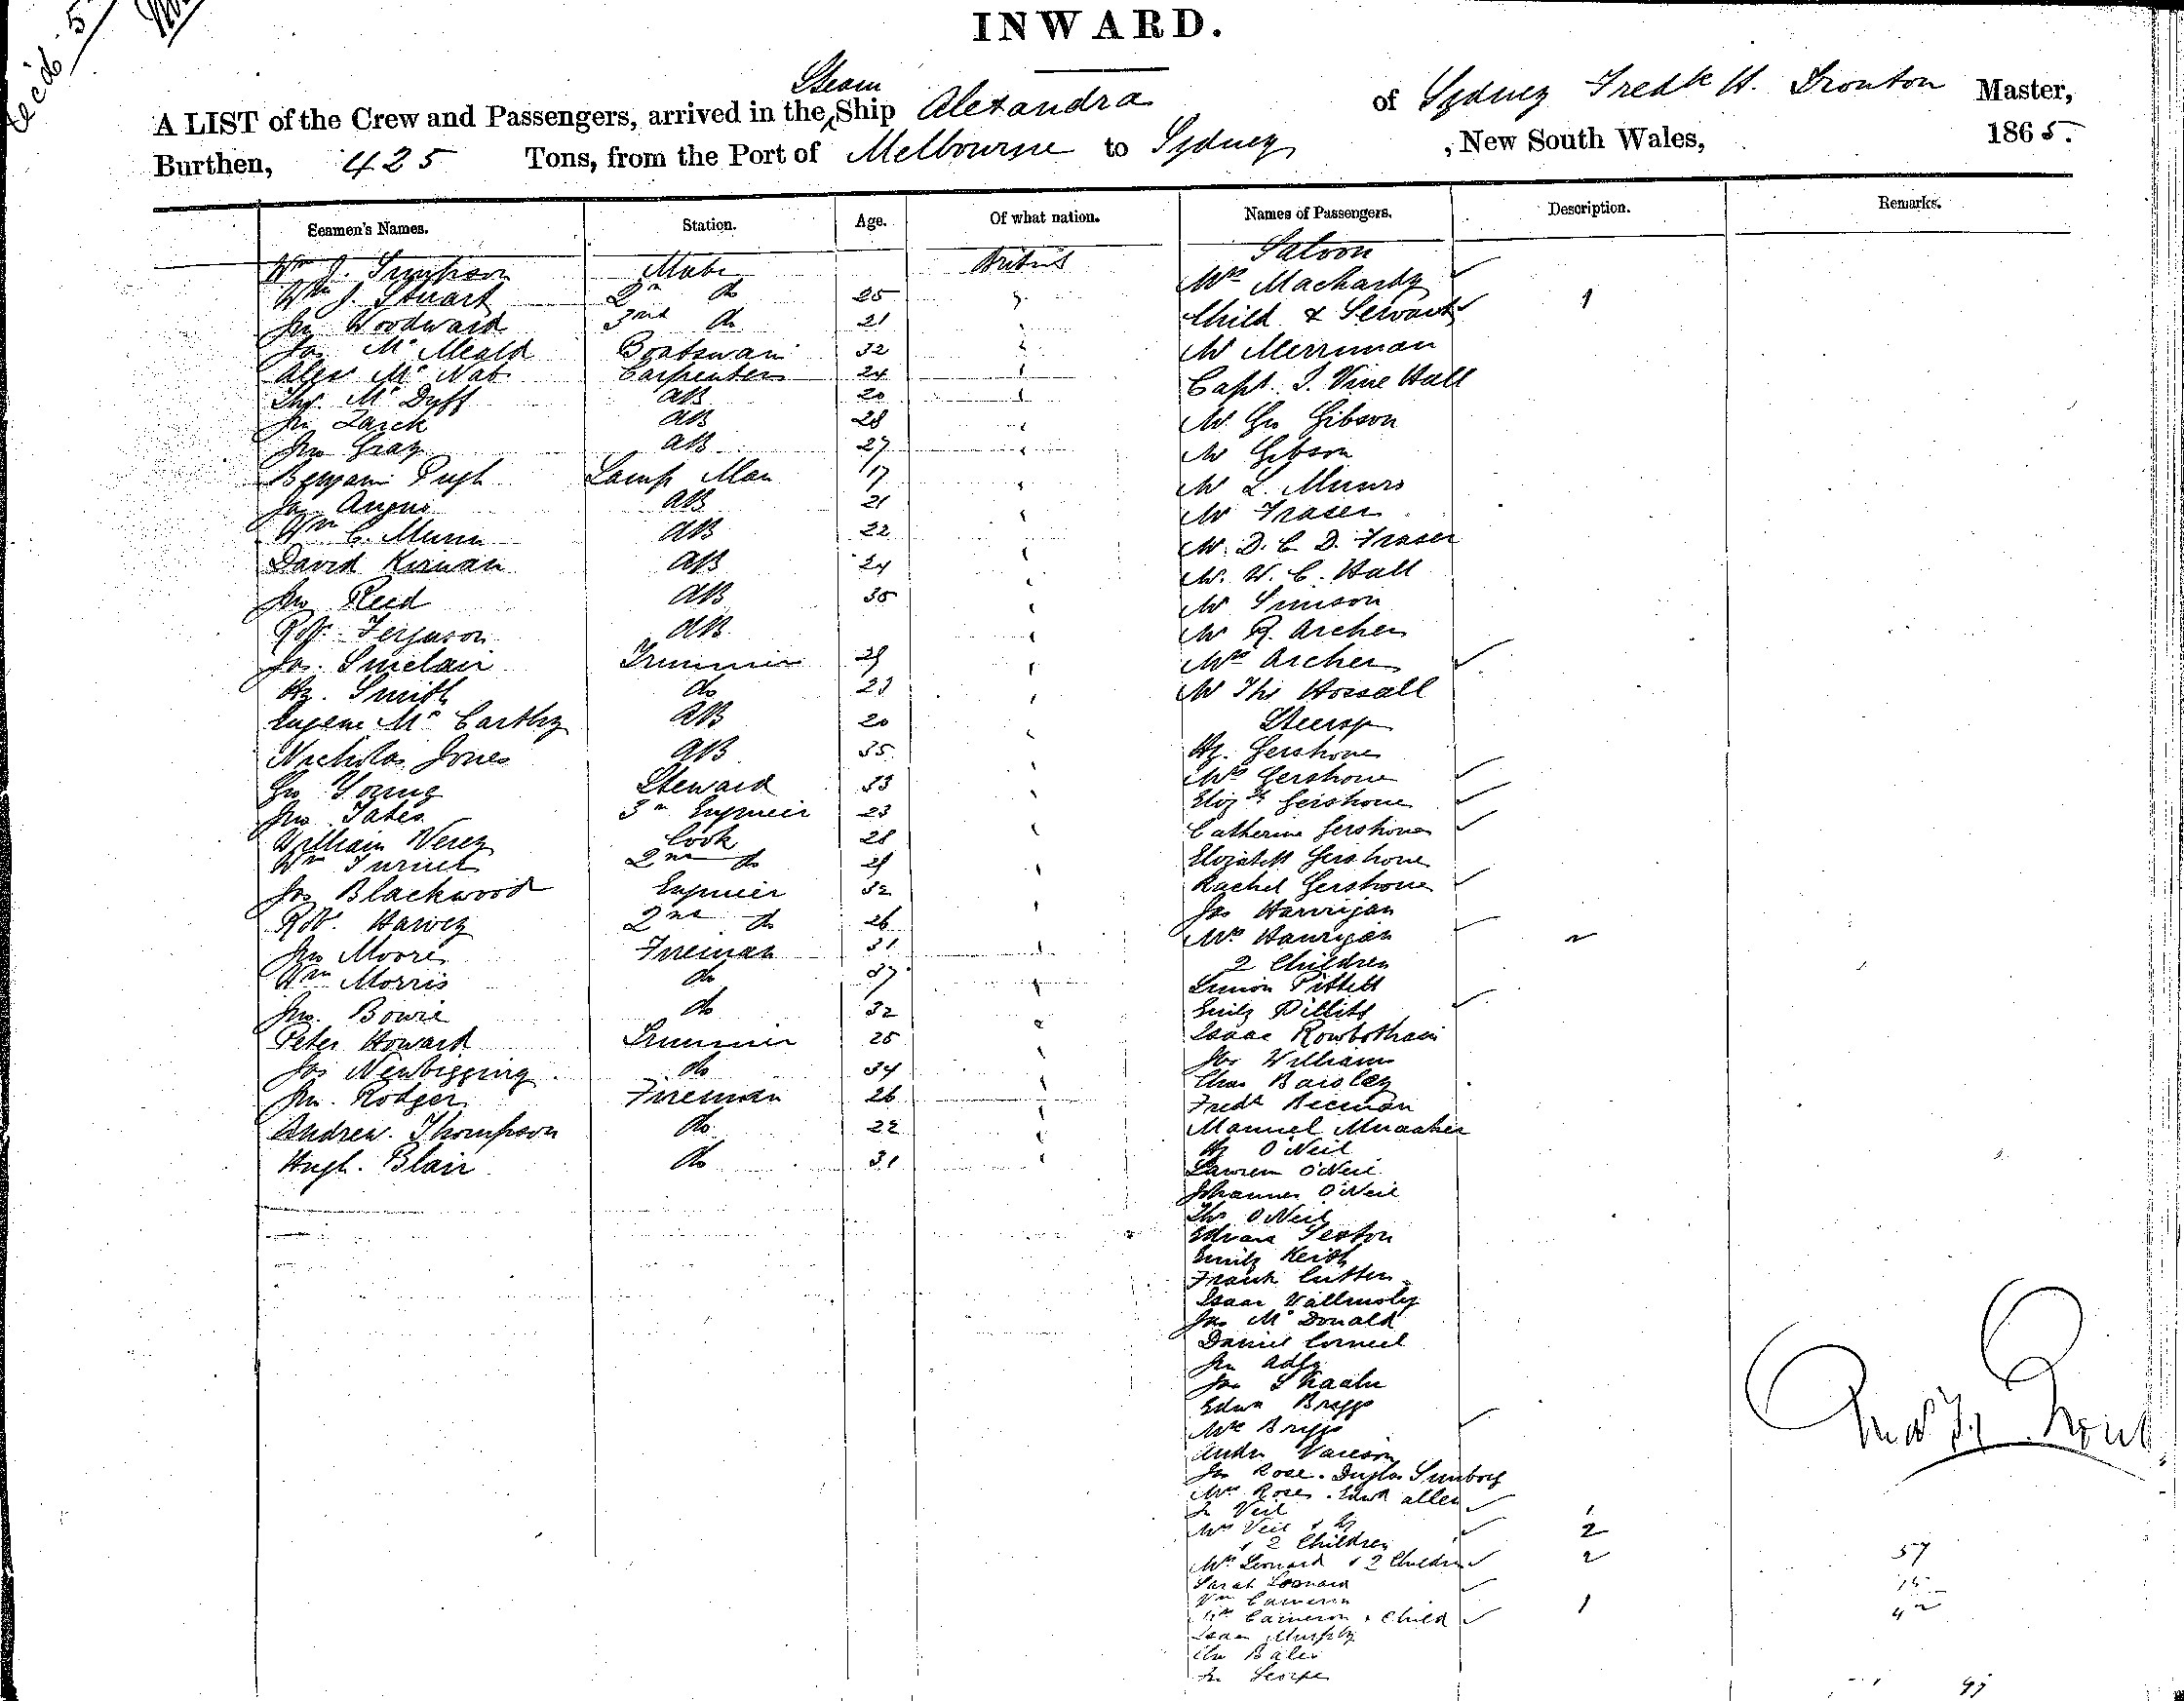 INWARD.
A LIST of the Crew and Passengers, arrived in the Steam Ship Alexandra of Sydney Fredk H. Trouton Master,
Burthen, 425 Tons, from the Port of Melbourne to Sydney, New South Wales, 1865.
Seamen's Names. Station. Age. Of what nation. Names of Passengers. Description. Remarks.
Wm J. Simpson Mate British
Wm J. Stuart 2n do 25
Jno Woodward 3rd do 21
Jas Mc Meald Boatswain 32
Alexr Mc Nab Carpenter 24
Thos. Mc Duff AB 20
Jno AB 28
Jno Gray AB 27
Benjamin Pugh Lamp Man 17
Jas Angus AB 21
Wm C. Munn AB 22
David Kirnan AB 24
Jno Reed AB 35
Robt. Ferguson AB
Jas. Sinclair Trimmer 29
Hy. Smith do 23
Eugene Mc Carthy AB 20
Nicholas Jones AB 35
Geo Young Steward 33
Jno Yates 3rd Engineer 23
William Verey Cook 28
Wm 2nd do 29
Jas Blackwood Engineer 32
Robt. Harvey 2nd do 26
Jno Moore Fireman 31
Wm Morris do 37
Jno. Bowie do 32
Peter Howard Trimmer 25
Jas Newbigging do 34
Jno. Rodger Fireman 26
Andrew Thompson do 22
Hugh Blair do 31
Saloon
Mrs Machardy
Child & Servant 1
Mr Merriman
Capt. J. Vine Hall
Mr. Geo Gibson
Mr Gibson
Mr L. Munro
Mr Fraser
Mr. D. C. D. Fraser
Mr. W. C. Hall
Mr Simson
Mr R. Archer
Mrs Archer
Mr Thos Horsall
Steerage
Hy. Gershone
Mrs Gershone
Elizth Gershone
Catherine Gershone
Elizabeth Gershone
Rachel Gershone
Jas Harrigan
Mrs Harrigan 2
2 Children
Simon Pittitt
Emily Pittitt
Isaac Rowbotham
Jas William
Chas Baisley
Fredk Beeman
Manuel
Hy O'Neil
Lawren O'Neil
Johanna O'Neil
Thos O'Neil
Edward Sexton
Emily Keith
Frank Cutten
Isaac Wallmsley
Jas Mc Donald
Daniel
Jno
Jas
Edwd Briggs
Mrs Briggs
Andw
Jno Rose. Duglas
Mrs Rose. Edwd Allen
Jn Veil 1
Mrs Veil 2
& 2 Children
Mrs Leonard & 2 Children 2 57
Sarah Leonard 15
Wm Cameron
Mrs Cameron & Child 1
Isaac Murphy
Chs Bales
Jn George